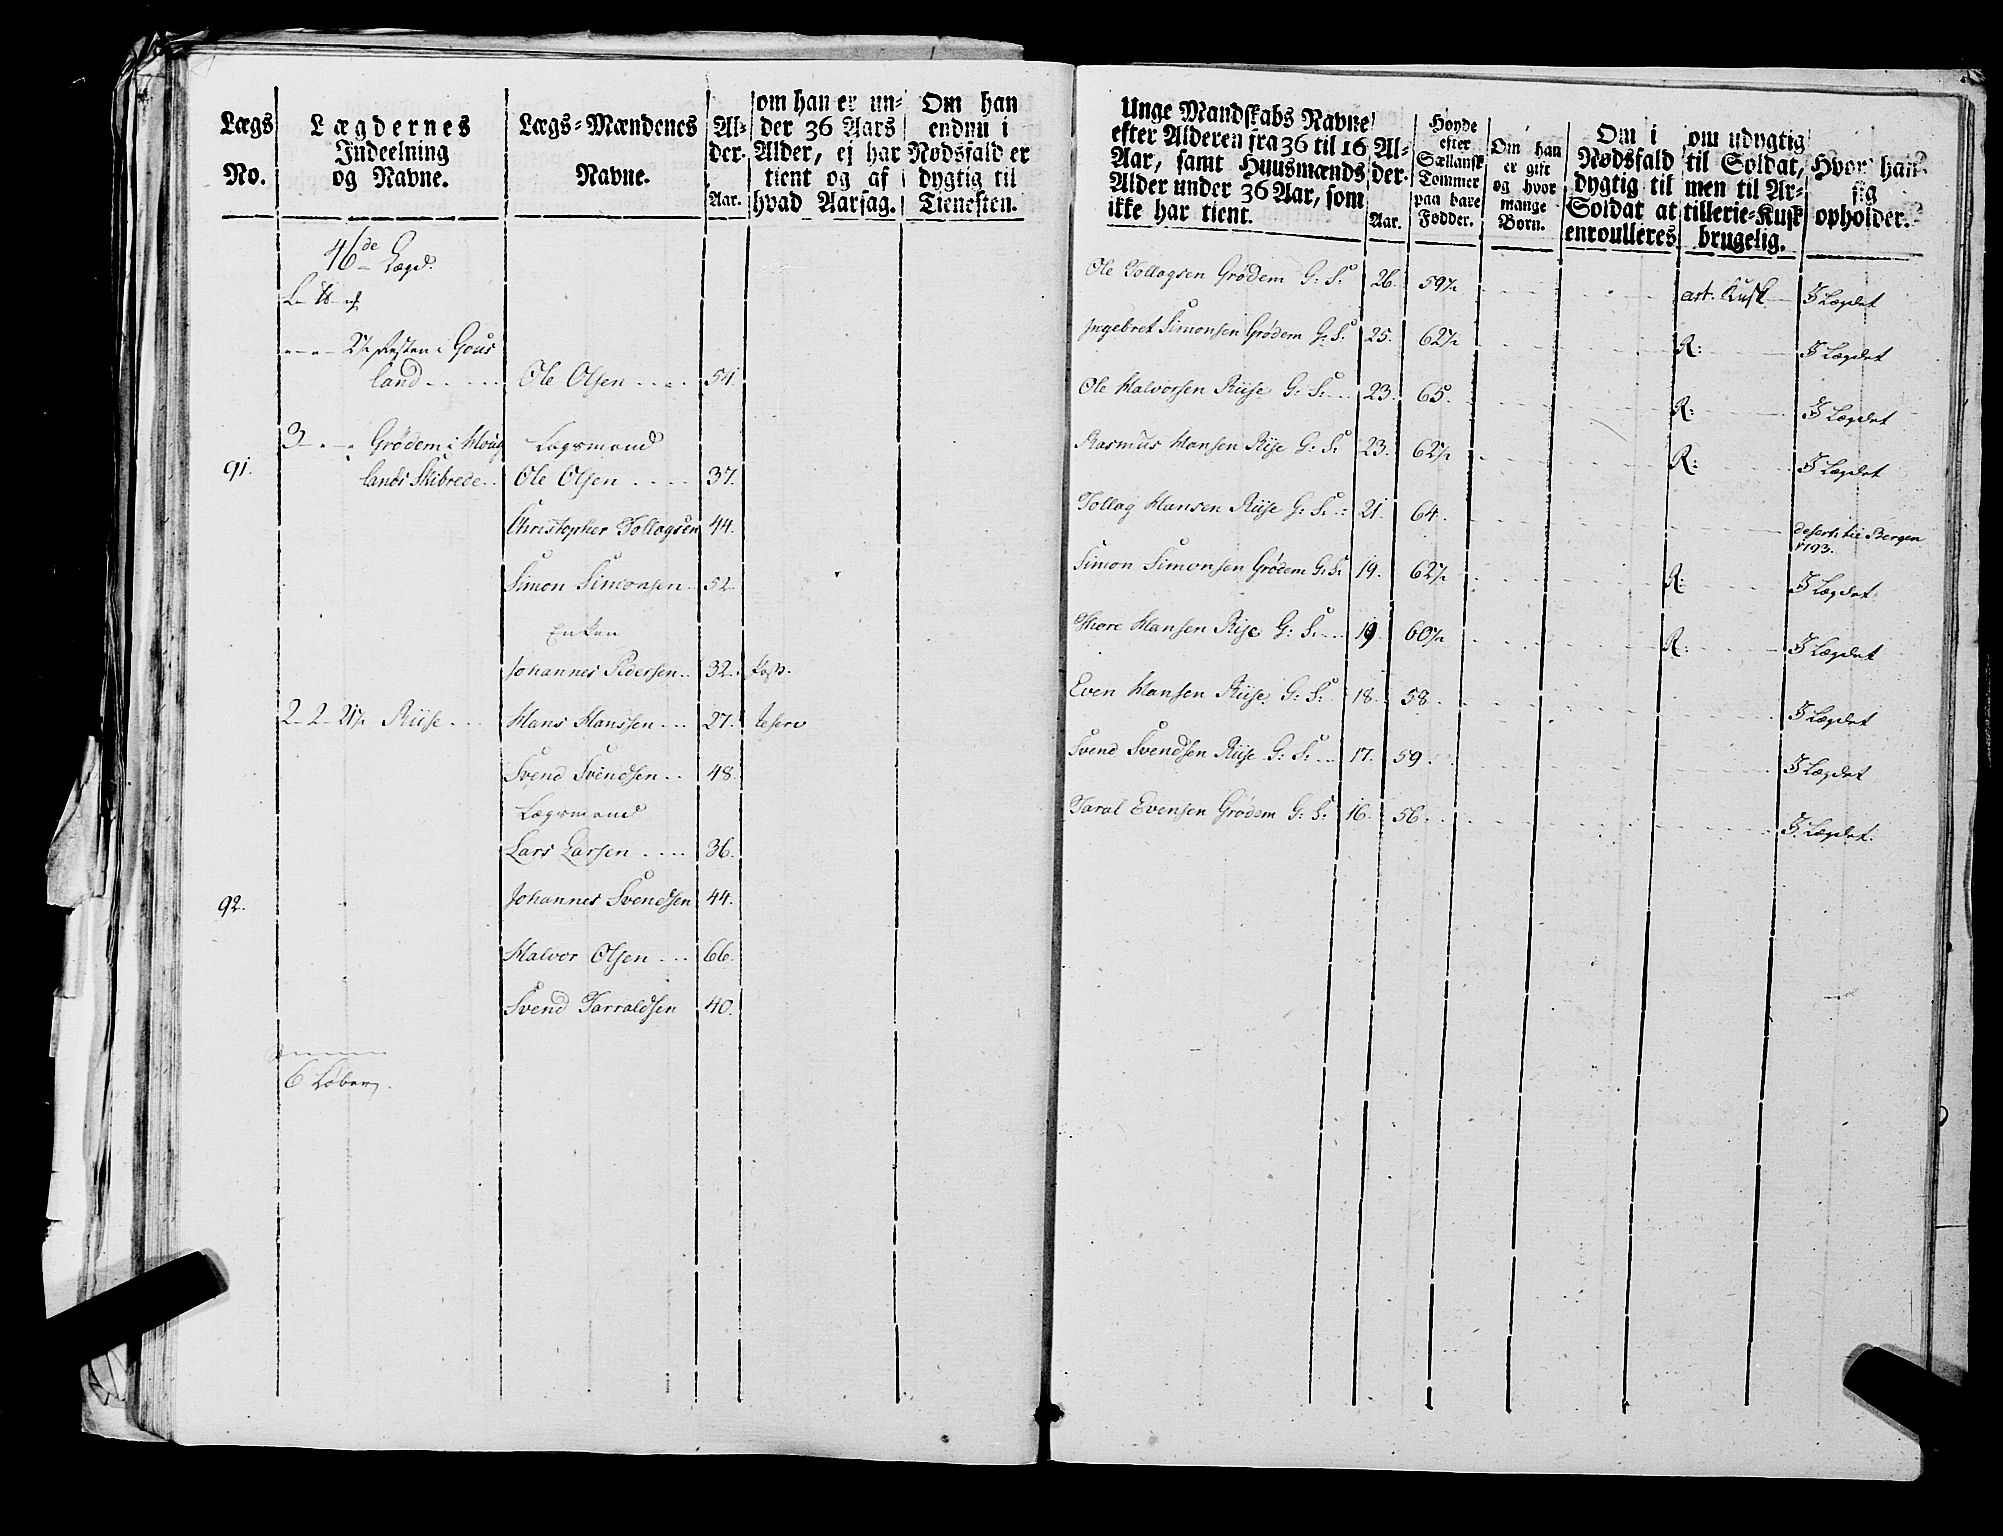 Lægs
No.
Lægdernes
Indeelning
og Navne.
Lægs-Mændenes
Navne.
Al-
der.
Aar.
om han er un-
der 36 Aars
Alder, ej har
tient og af
hvad Aarsag.
Om han
endnu i
Nødsfald er
dygtig til
Tienesten.
46de Lægd.
Gous
land
Ole Olsen 54
91.
3 Grødem i Houg
lands Skibrede
Lægsmand
Ole Olsen 37.
Christopher Tollagsen 44.
Simon Simonsen 52
Enken
Johannes Pedersen 32.
2 2 Riise
Hans Hanssen 27.
Svend Svendsen 48.
Lægsmand
Lars Larsen 36.
92.
Johannes Svendsen 44.
Halvor Olsen 66.
Svend Tarraldsen 40.
6 Løber
Unge Mandskabs Navne
efter Alderen fra 36 til 16
Aar, samt Huusmænds
Alder under 36 Aar, som
ikke har tient.
Al-
der.
Aar.
Høyde
efter
Sællansk
Tommer
paa bare
Fødder.
Om han
er gift
og hvor
mange
Børn.
Om i
Nødsfald
dygtig til
Soldat at
enroulleres
om udygtig
til Soldat,
men til Ar-
tillerie-Kusk
brugelig.
Hvor han
sig
opholder.
Ole Tollagsen Grødem G: S: 26. 59½ art. Kusk I Lægdet
Ingebret Simonsen Grødem G: S: 25. 62½ R: I Lægdet
Ole Halvorsen Riise G: S: 23. 65. R: I Lægdet
Rasmus Hansen Riise G: S: 23. 62½ R: I Lægdet
Tollag Hansen Riise G: S: 21. 64. desert: til Bergen
1793.
Simon Simonsen Grødem G: S: 19. 62½ R: I Lægdet
Thore Hansen Rise G: S: 19. 60½ R: I Lægdet
Even Hansen Riise G: S: 18. 58. I Lægdet
Svend Svendsen Riise G: S: 17. 59. I Lægdet
Taral Evensen Grødem G: S: 16. 56. I Lægdet.